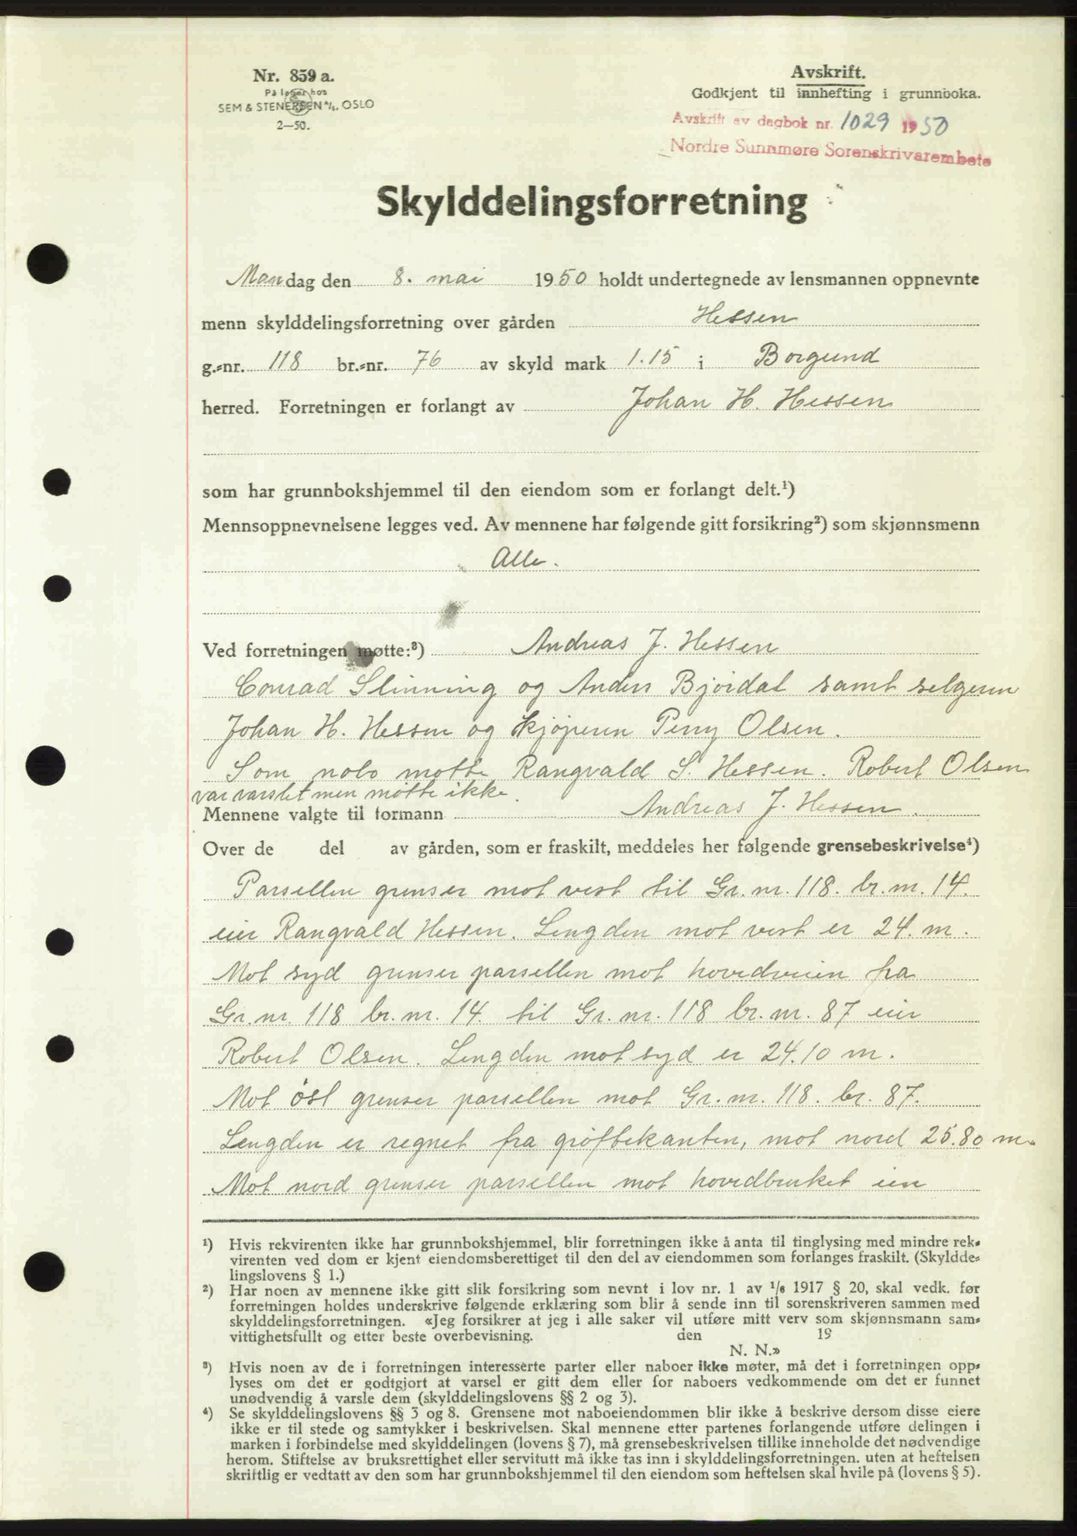 Nr. 859 a.
På lager hos
SEM & STENERSEN A/S. OSLO
2—50.
Avskrift.
Godkjent til innhefting i grunnboka.
Avskrift av dagbok nr. 1029 1950
Nordre Sunnmøre Sorenskrivarembete
Skylddelingsforretning
Mandag den 8. mai 1950 holdt undertegnede av lensmannen oppnevnte
menn skylddelingsforretning over gården Hessen
g.-nr. 118 br.-nr. 76 av skyld mark 1.15 i Borgund
herred. Forretningen er forlangt av Johan H. Hessen
som har grunnbokshjemmel til den eiendom som er forlangt delt.¹)
Mennsoppnevnelsene legges ved. Av mennene har følgende gitt forsikring²) som skjønnsmenn
Alle.
Ved forretningen møtte:³) Andreas J. Hessen
Conrad Slinning og Anders Bjørdal samt selgeren
Johan H. Hessen og kjøperen Perry Olsen.
Som nabo møtte Rangvald S. Hessen. Robert Olsen
var varslet men møtte ikke.
Mennene valgte til formann Andreas J. Hessen.
Over de del av gården, som er fraskilt, meddeles her følgende grensebeskrivelse⁴)
Parsellen grenser mot vest til Gr. nr. 118. br. nr. 14
eier Rangvald Hessen. Lengden mot vest er 24. m.
Mot syd grenser parsellen mot hovedveien fra
Gr. nr. 118 br. nr. 14 til Gr. nr. 118 br. nr. 87 eier
Robert Olsen. Lengden mot syd er 24.10 m.
Mot öst grenser parsellen mot Gr. nr. 118. br. 87.
Lengden er regnet fra grøftekanten, mot nord 25.80 m.
Mot nord grenser parsellen mot hovedbruket eien
¹) Hvis rekvirenten ikke har grunnbokshjemmel, blir forretningen ikke å anta til tinglysing med mindre rek-
virenten ved dom er kjent eiendomsberettiget til den del av eiendommen som forlanges fraskilt. (Skyldde-
lingslovens § 1.)
²) Har noen av mennene ikke gitt slik forsikring som nevnt i lov nr. 1 av ¹/₆ 1917 § 20, skal vedk. før
forretningen holdes underskrive følgende erklæring som blir å sende inn til sorenskriveren sammen med
skylddelingsforretningen. «Jeg forsikrer at jeg i alle saker vil utføre mitt verv som skjønnsmann sam-
vittighetsfullt og etter beste overbevisning. den 19
N. N.»
³) Hvis noen av de i forretningen interesserte parter eller naboer ikke møter, må det i forretningen opp-
lyses om det er godtgjort at varsel er gitt dem eller for naboers vedkommende om det er funnet
unødvendig å varsle dem (skylddelingslovens §§ 2 og 3).
⁴) Se skylddelingslovens §§ 3 og 8. Grensene mot naboeiendommen blir ikke å beskrive dersom disse eiere
ikke er til stede og samtykker i beskrivelsen. Skal mennene etter partenes forlangende utføre delingen i
marken i forbindelse med skylddelingen (lovens § 7), må grensebeskrivelsen tillike inneholde det nødvendige
herom. Stiftelse av bruksrettighet eller servitutt må ikke tas inn i skylddelingsforretningen. uten at heftelsen
skriftlig er vedtatt av den som har grunnbokshjemmel til den eiendom som heftelsen skal hvile på (lovens § 5).